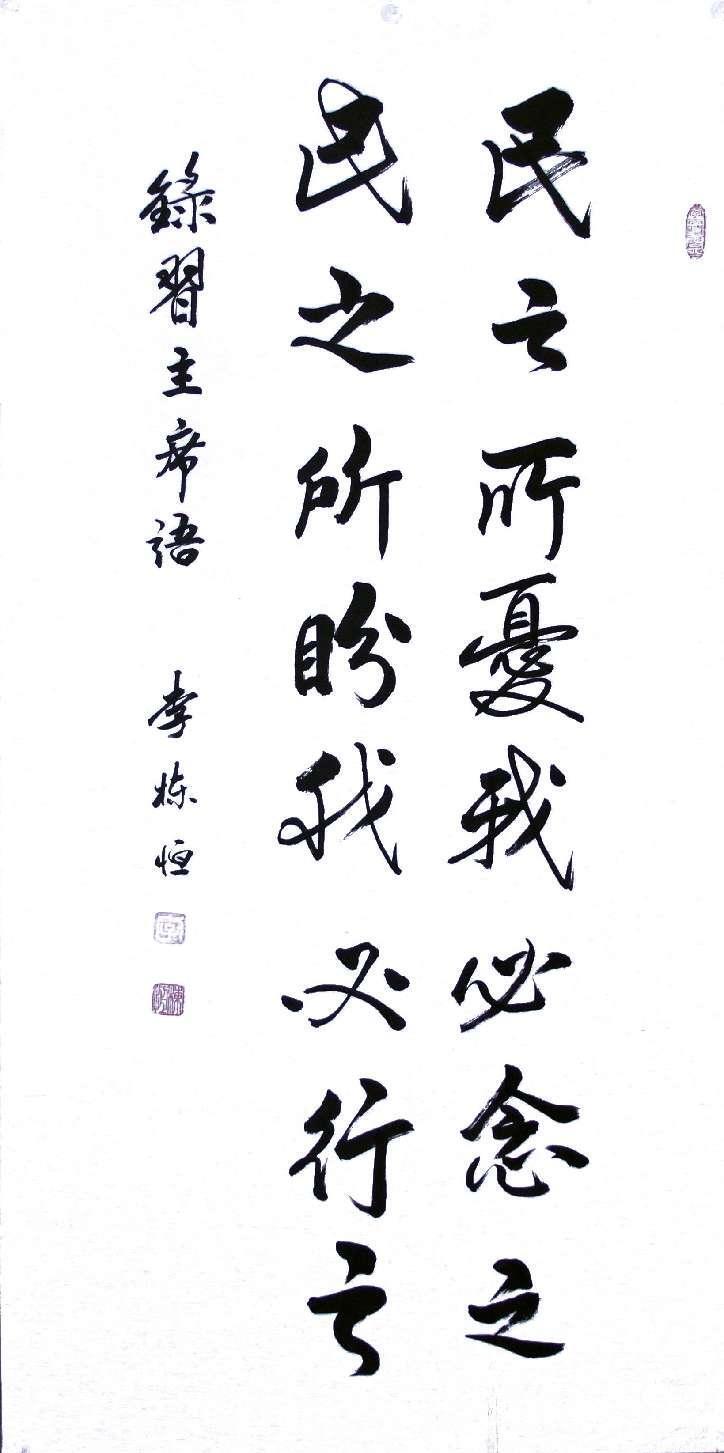 民之所憂我必念之
民之所盼我必行之
錄習主席語 李栋恒